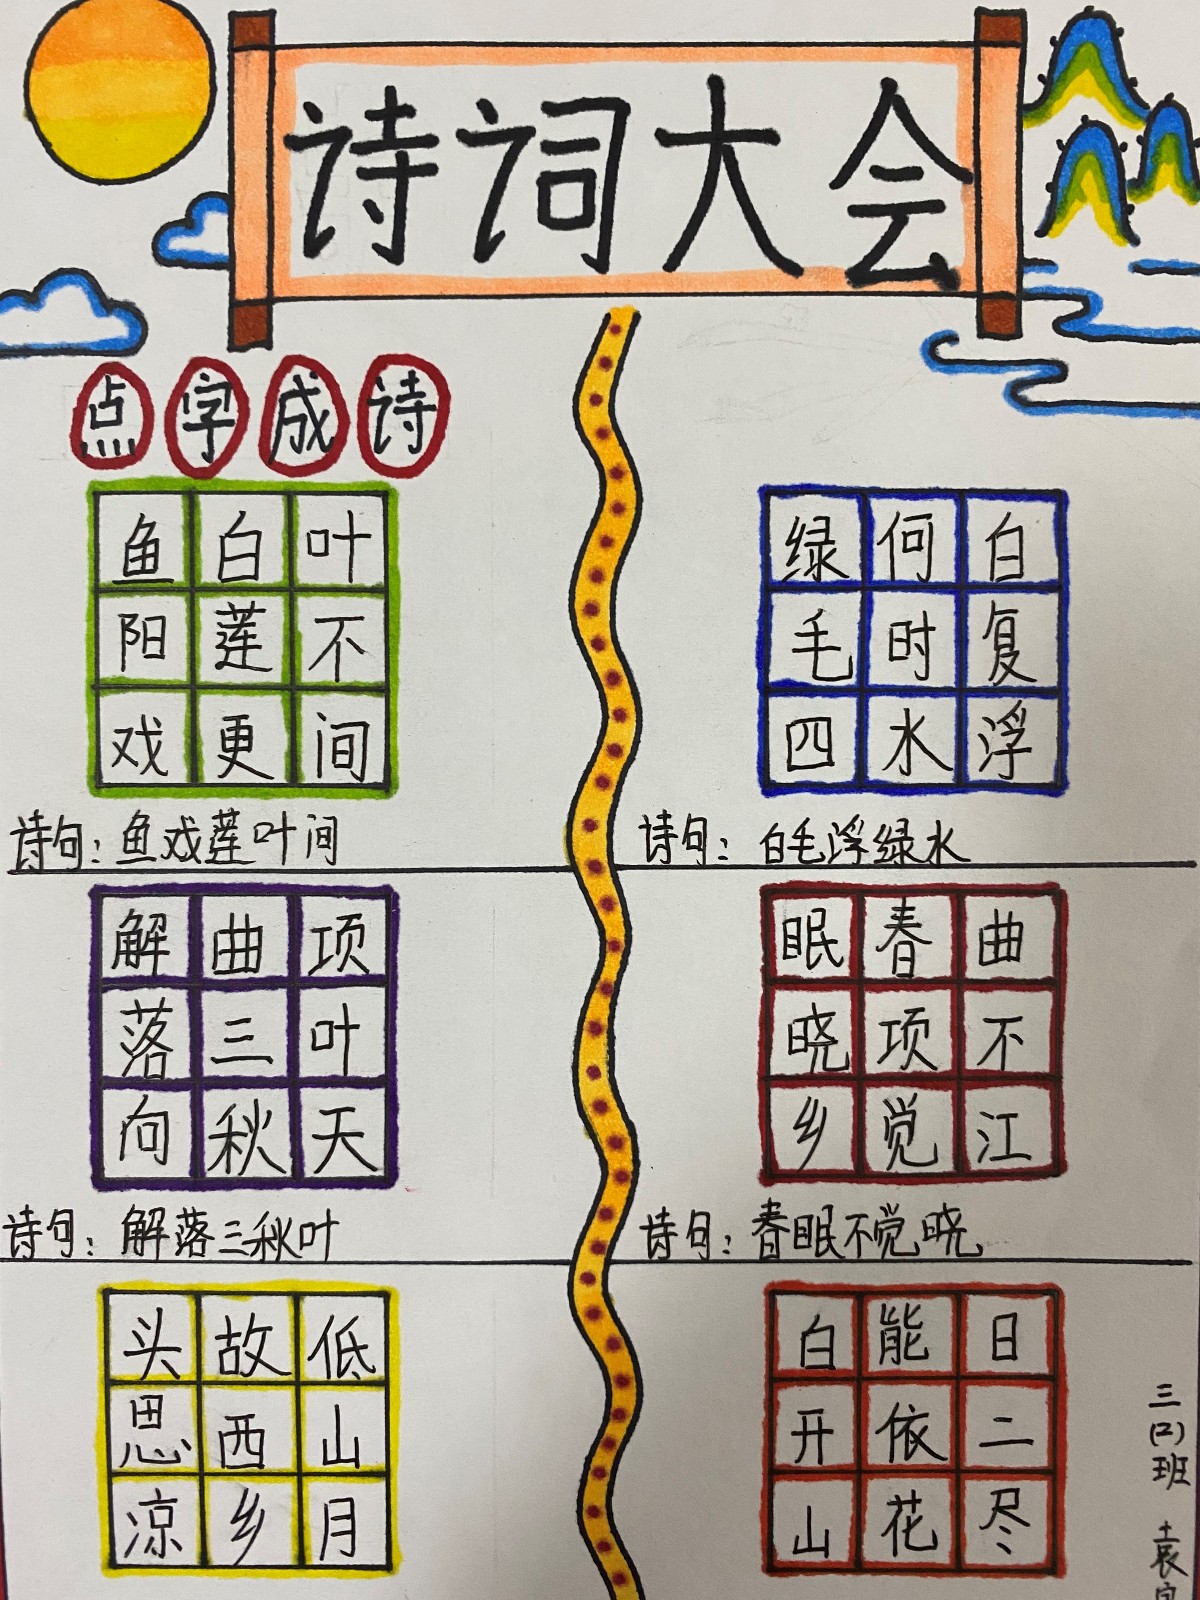 诗词大会
点字成诗
鱼白叶
阳莲不
戏更间
诗句：鱼戏莲叶间
绿何白
毛时复
四水浮
诗句：白毛浮绿水
解曲项
落三叶
向秋天
诗句：解落三秋叶
眠春曲
晓项不
乡觉江
诗句：春眠不觉晓
头故低
思西山
凉乡月
白能日
开依二
山花尽
三(2)班 袁